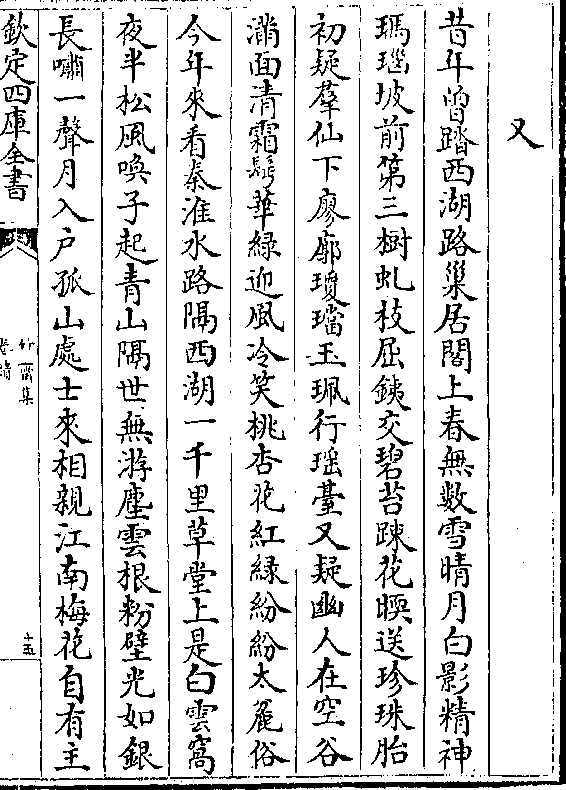 又
昔年曾踏西湖路巢居閣上春無數雪晴月白影精神
瑪瑙坡前第三樹虬枝屈鐵交碧苔踈花暝送珍珠胎
初疑羣仙下廖廓瓊璫玉珮行瑶臺又疑幽人在空谷
滿面清霜鬢華緑迎風冷笑桃杏花紅緑紛紛太麄俗
今年來看秦淮水路隔西湖一千里草堂上是白雲窩
夜半松風喚子起青山隔世無游塵雲根粉壁光如銀
長嘯一聲月入户孤山處士來相親江南梅花自有主
欽定四庫全書
竹齋集
十五